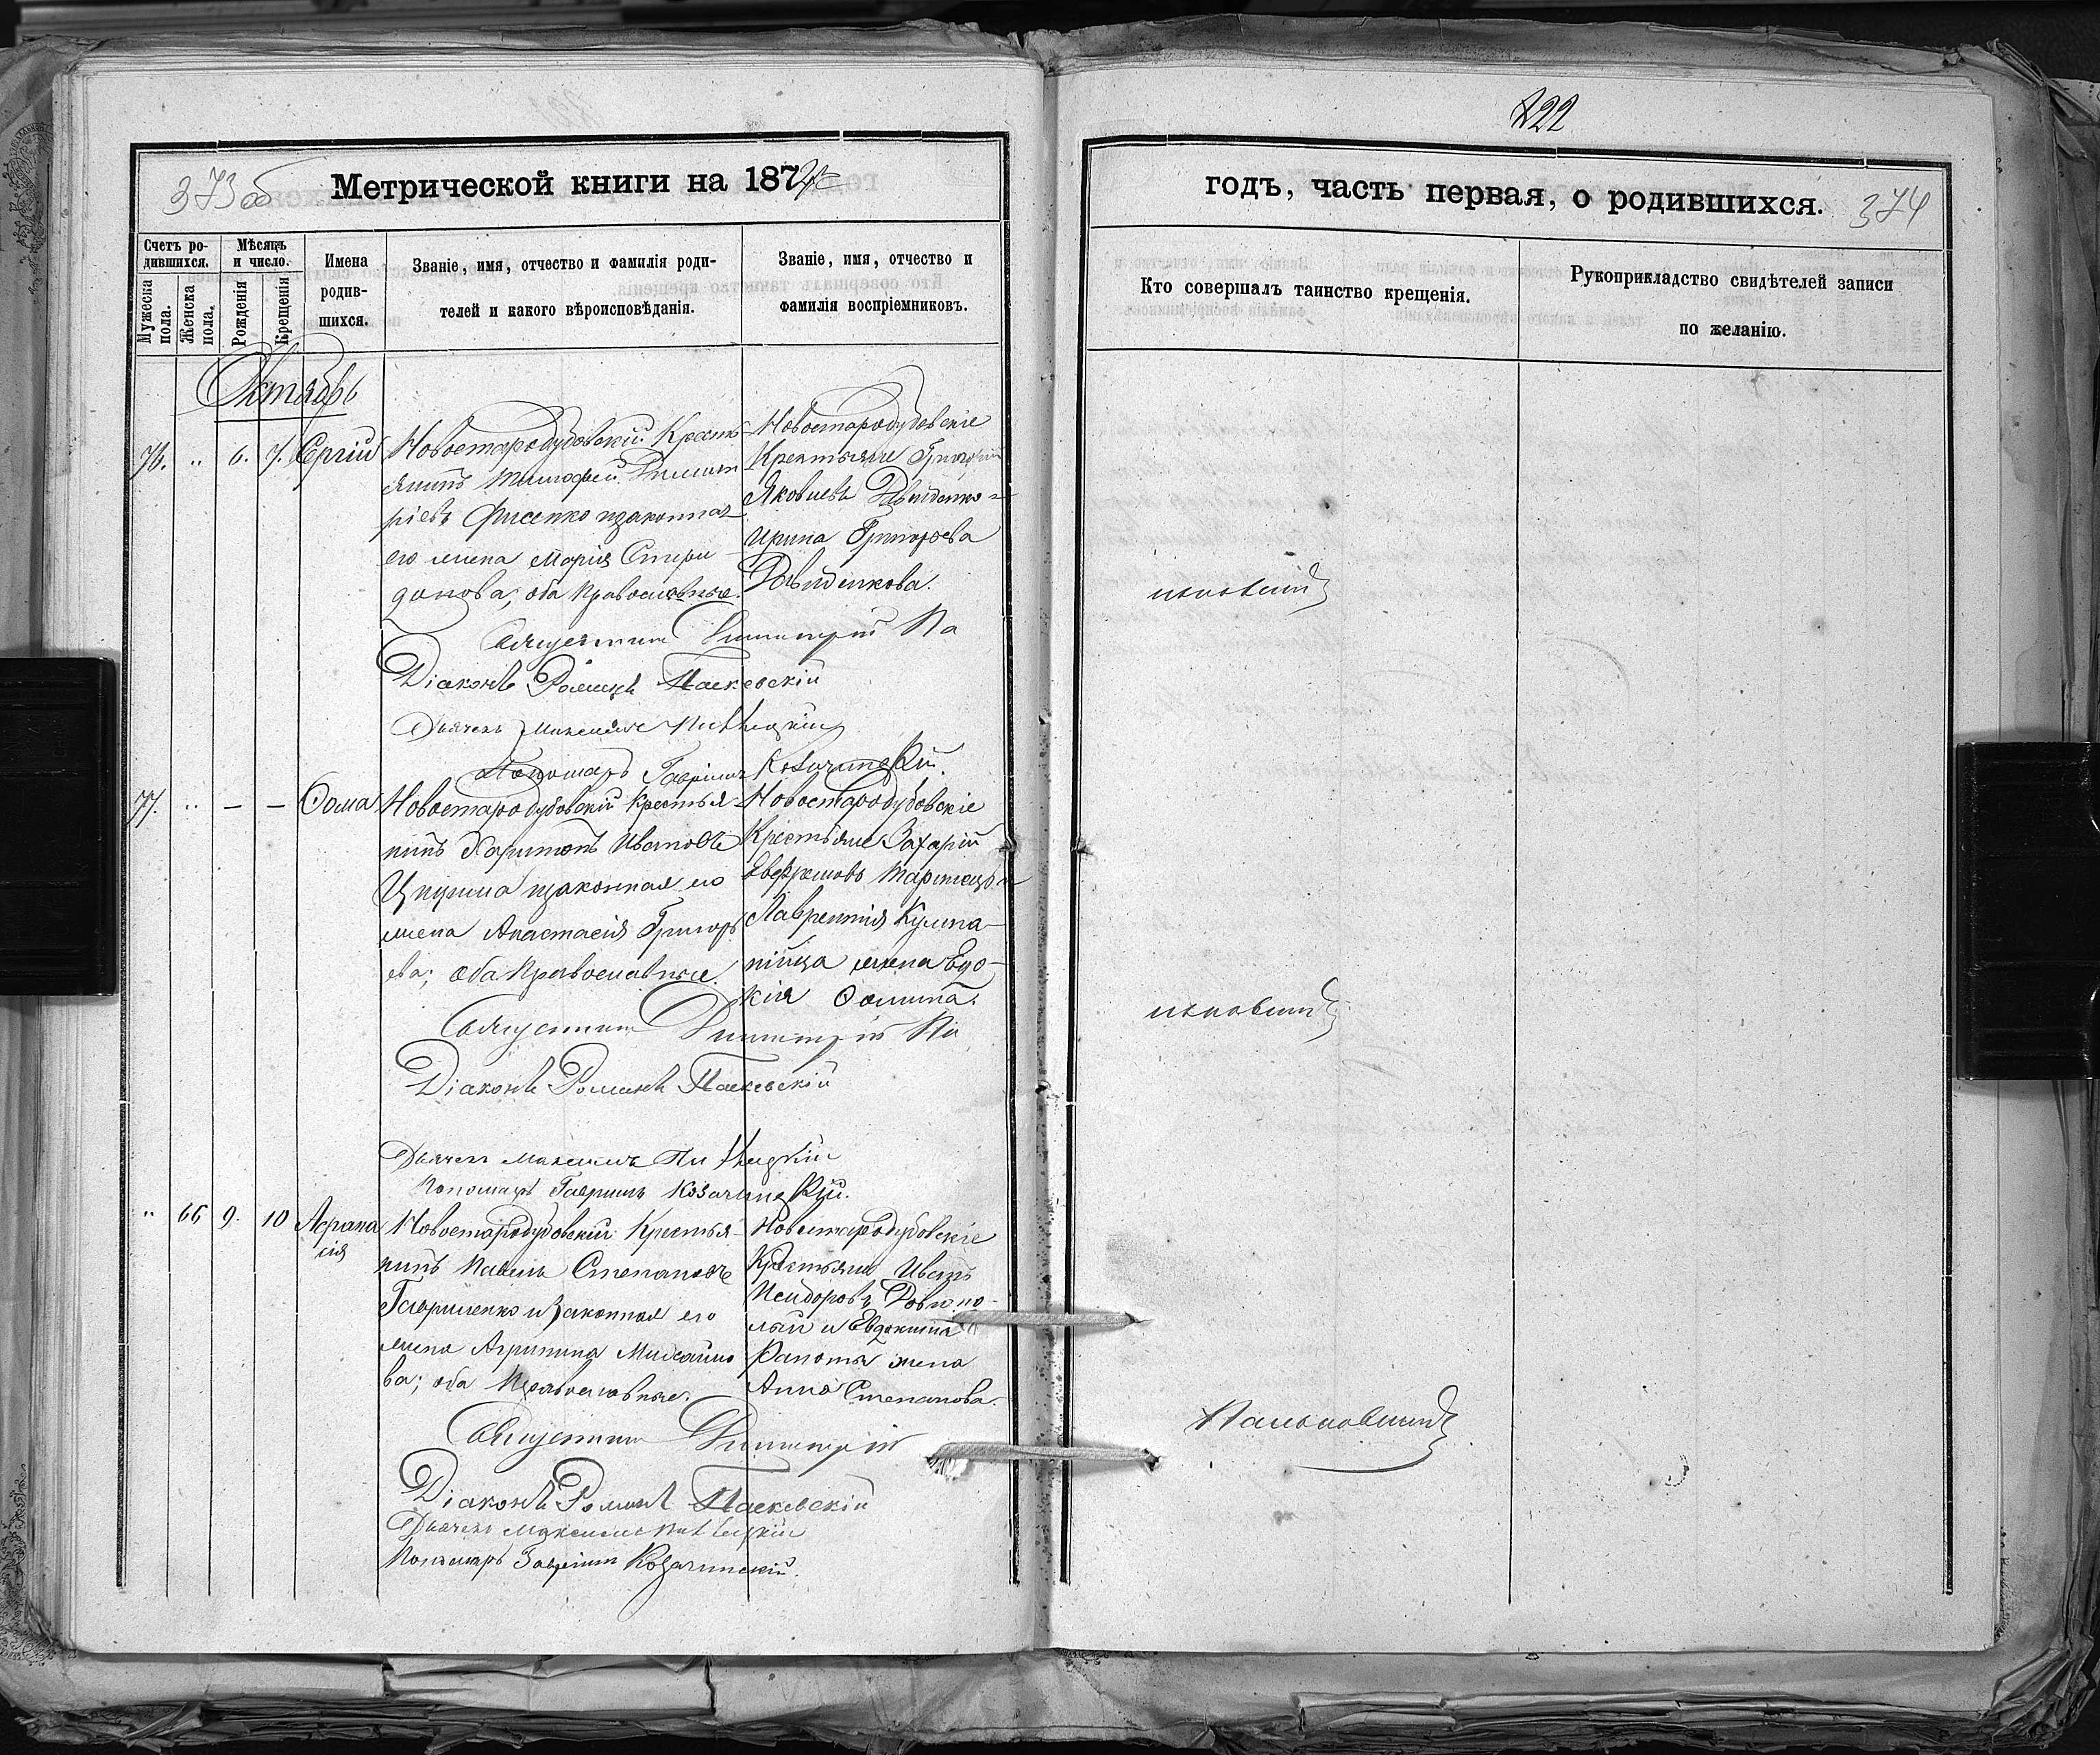 122
373об
Метрической книги на 1874
годъ, часть первая, о родившихся.
374
Счетъ ро-
дившихся.
Мужеска
пола.
Женска
пола.
Мѣсяцъ
и число.
Рожденія
Крещенія
Имена
родив-
шихся.
Званіе, имя, отчество и фамилія роди-
телей и какого вѣроисповѣданія.
Званіе, имя, отчество и
фамилія воспріемниковъ.
Кто совершалъ таинство крещенія.
Рукоприкладство свидѣтелей записи
по желанію.
Октябрь
76. " 6. 7. Сергій
Новостародубовскій Кресть-
янинъ Тимофей Димит
ріевъ Фисенко и законная
его жена Марія Спири
донова; оба Православные.
Новостародубовскіе
Крестьяне Григорій
Яковлевъ
Ирина Григорьева
Священник Димитрій Па
Діаконъ Романъ Паскевскій
Дьячекъ Максимъ
Пономарь Гавріилъ Козачинскій.
77. " — — Ѳома
Новостародубовскій Крестья-
нинъ Харитонъ Ивановъ
и законная его
жена Анастасія Григорь
ева; оба Православные.
Новостародубовскіе
Крестьяне Захарій
Лаврентія
жена Евдо-
кія Ѳомина.
Священник Димитрій Па
Діаконъ Романъ Паскевскій
Дьячекъ Максимъ
Пономарь Гавріилъ Козачинскій.
" 66 9. 10 Афана
сія
Новостародубовскій Крестья-
нинъ Павелъ Степановъ
Гавриленко и законная его
жена Агрипина Михайло
ва; оба Православные.
Новостародубовскіе
Крестьяне Иванъ
Исидоровъ
и Евдокима
жена
Анна Степанова.
Священник Димитрій
Діаконъ Романъ Паскевскій
Дьячекъ Максимъ
Пономарь Гавріилъ Козачинскій.